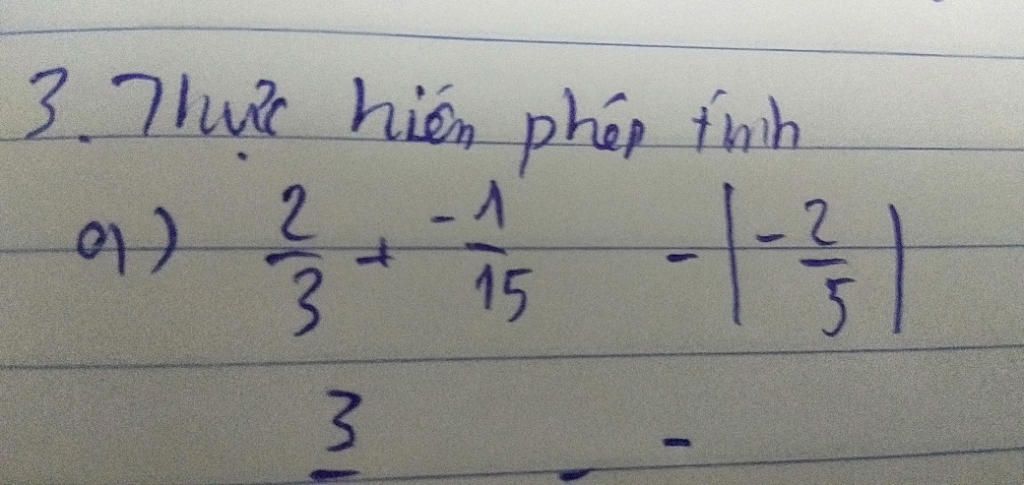 3. Thực hiện phép tính
a) 2/3 + -1/15 - |-2/5|
3 - -